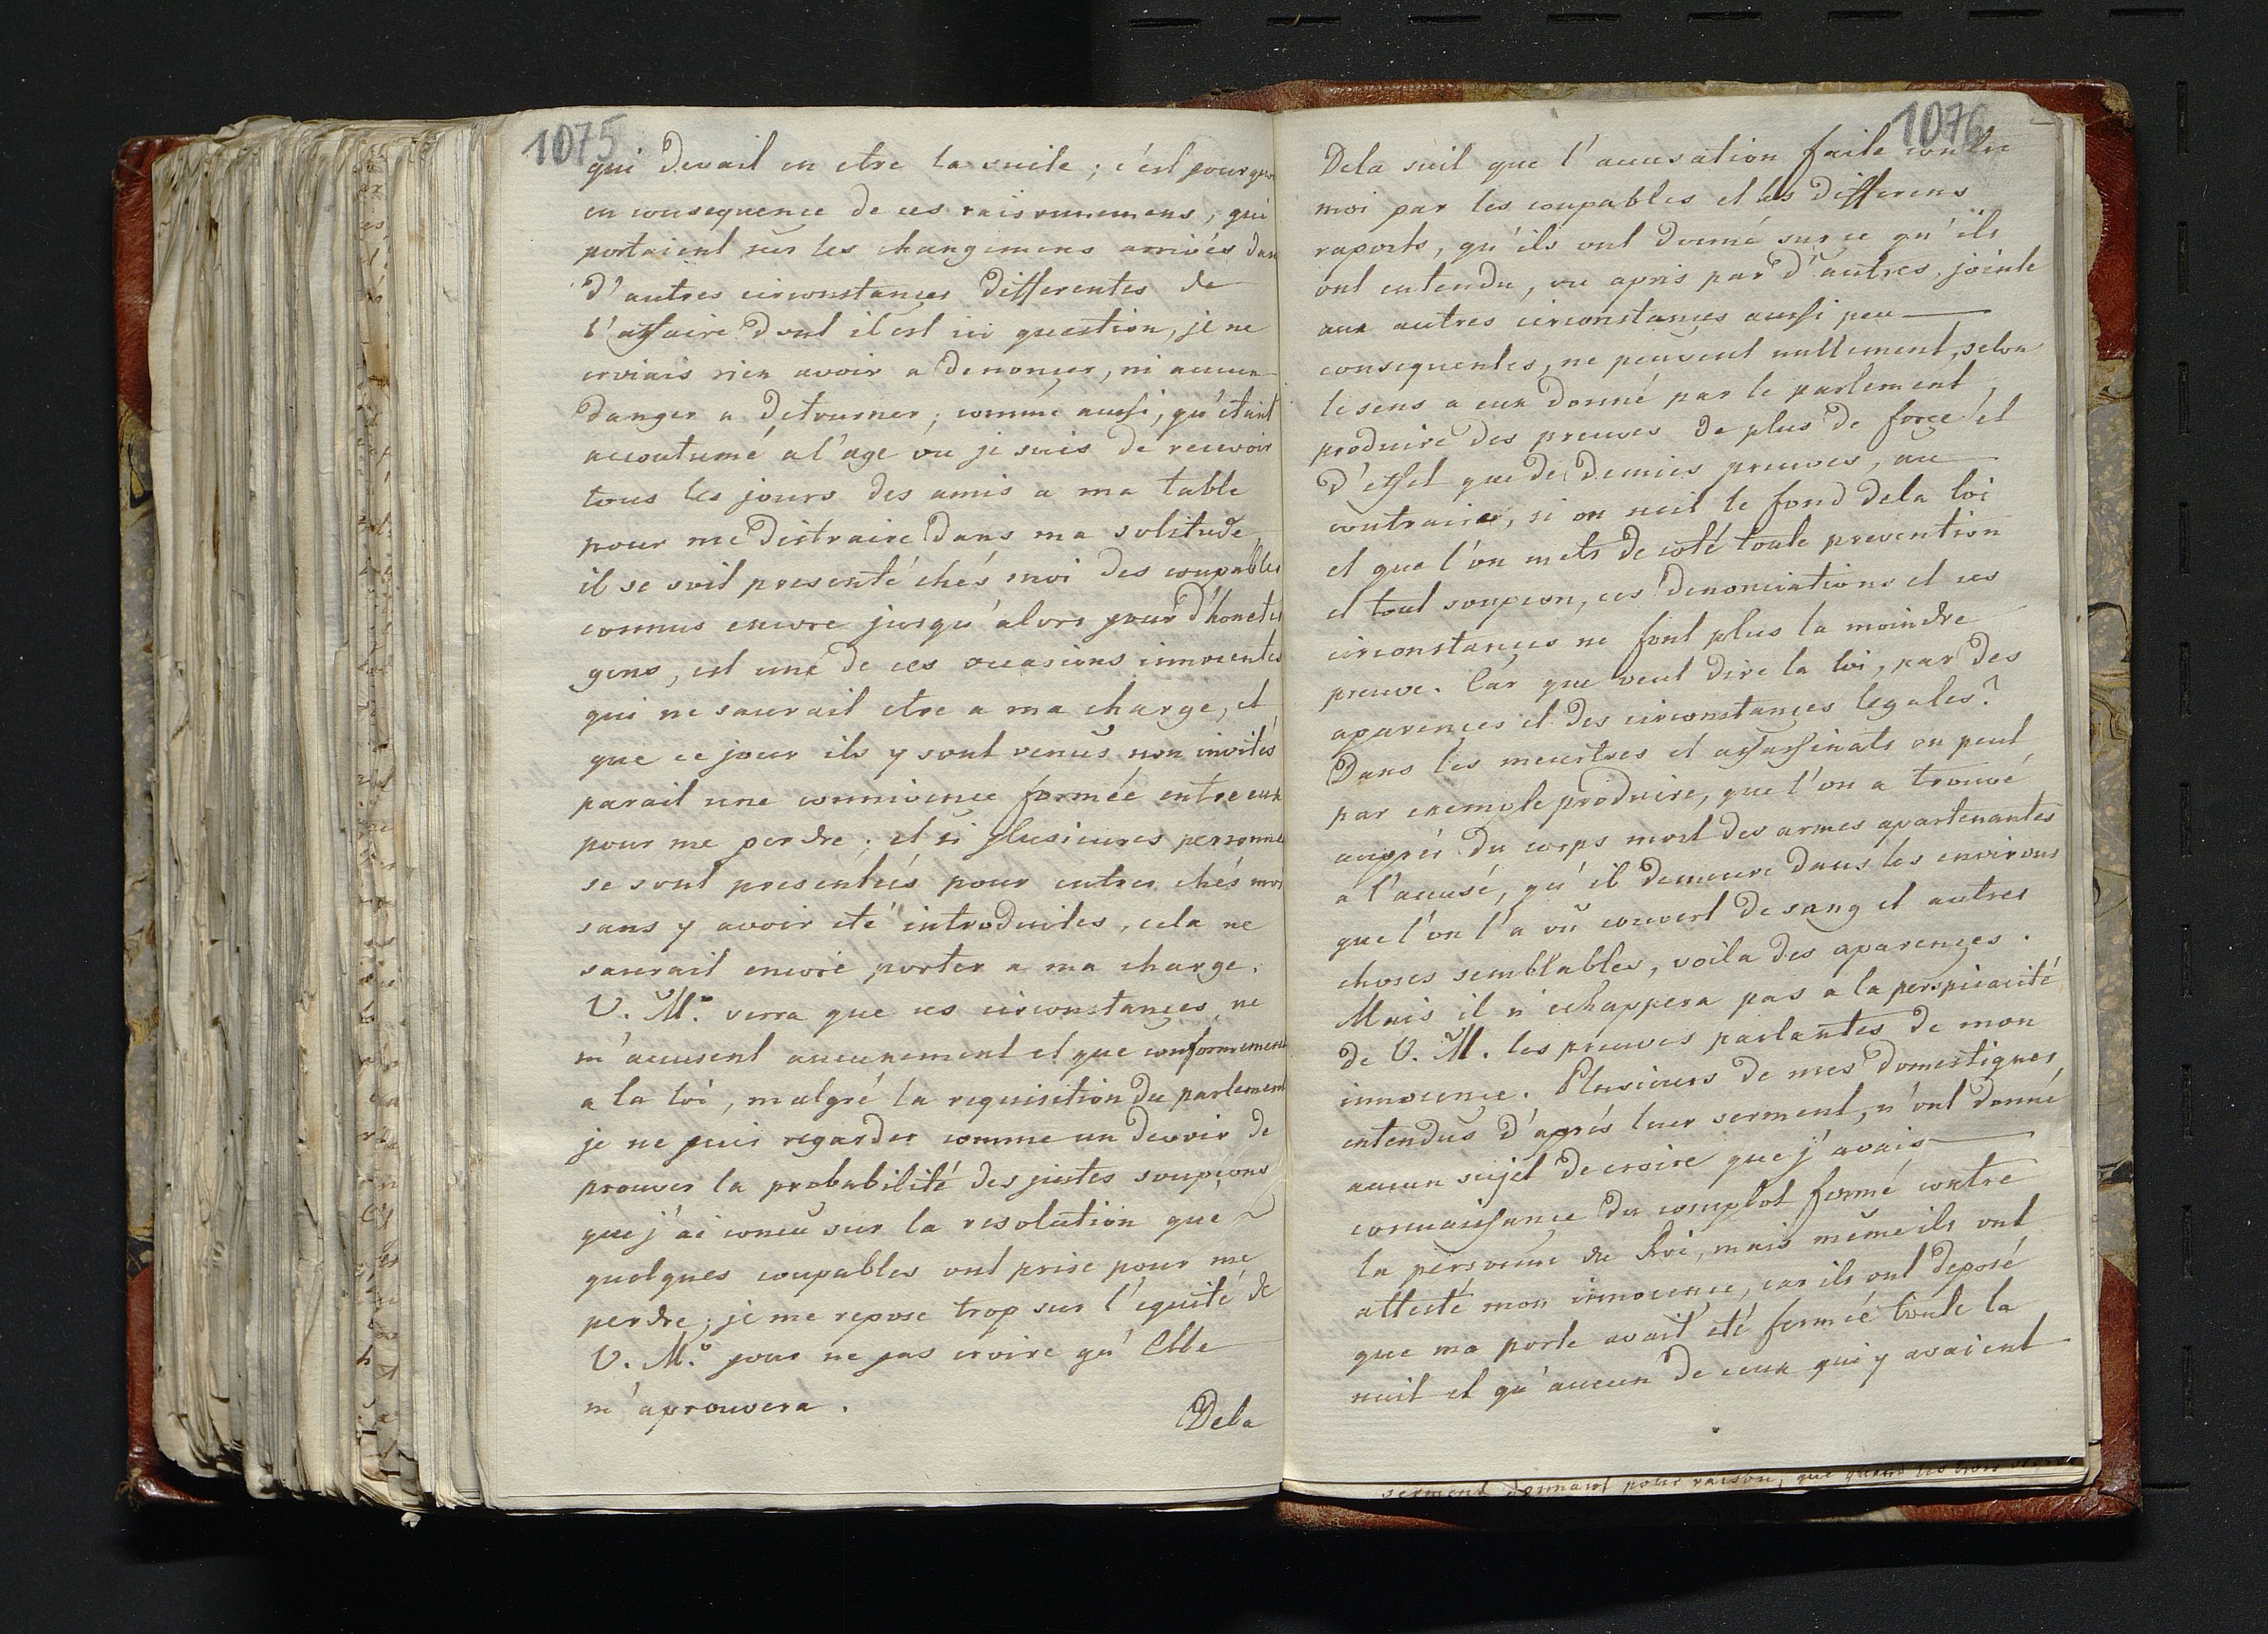 1075
qui devait en etre la suite; c'est pourquoi
en consequence de ces raisonnemens, qui
portaient sur les changemens arrivés dans
d'autres circonstances differentes de
l'affaire dont il est ici question, je ne
croiais rien avoir a denoncer, ni aucun
danger a detourner; comme aussi, qu'étant
accoutumé a l'age ou je suis de recevoir
tous les jours des amis a ma table
pour me distraire dans ma solitude,
il se soit presenté chés moi des coupables
connus encore jusqu'alors pour d'honetes
gens, est une de ces occasions innocentes
qui ne saurait etre a ma charge, et
que ce jour ils y sont venus non invités
parait une connivence formée entre eux
pour me perdre; et si plusieures personnes
se sont presentées pour entrer chés moi
sans y avoir eté introduites, cela ne
saurait encore porter a ma charge.
V. M. verra que ces circonstances, ne
m'accusent aucunement et que conformement
a la loi, malgré la requisition du parlement
je ne puis regarder comme un devoir de
prouver la probabilité des justes soupçons
que j'ai concu sur la resolution que
quelques coupables ont prise pour me
perdre; je me repose trop sur l'equité de
V. M. pour ne pas croire qu'Elle
m'aprouvera.
Dela
1076
Dela suit que l'accusation faite contre
moi par les coupables et les differens
raports, qu'ils ont donné sur ce qu'ils
ont entendu, ou apris par d'autres, jointe
aux autres circonstances aussi peu
consequentes, ne peuvent nullement, selon
le sens a eux donné par le parlement,
produire des preuves de plus de force et
d'effet que de demies preuves, au
contraire, si on suit le fond dela loi
et que l'on mets de coté toute prevention
et tout soupcon, ces denonciations et ces
circonstances ne font plus la moindre
preuve. Car que veut dire la loi, par des
aparences et des circonstances legales?
Dans les meurtres et assassinats on peut
par exemple produire, que l'on a trouvé
auprès du corps mort des armes apartenantes
a l'accusé, qu'il demeure dans les environs
que l'on l'a vû couvert de sang et autres
choses semblables, voila des aparences.
Mais il n'echappera pas a la perspicacité
de V. M. les preuves parlantes de mon
innocence. Plusieurs de mes domestiques,
entendus d'après leur serment, n'ont donné
aucun sujet de croire que j'avais
connaissance du complot formé contre
la personne du Roi, mais même ils ont
attesté mon innocence, car ils ont deposé
que ma porte avait eté fermée toute la
nuit et qu'aucun de ceux qui y avaient
serment donnant pour raison, que quand les